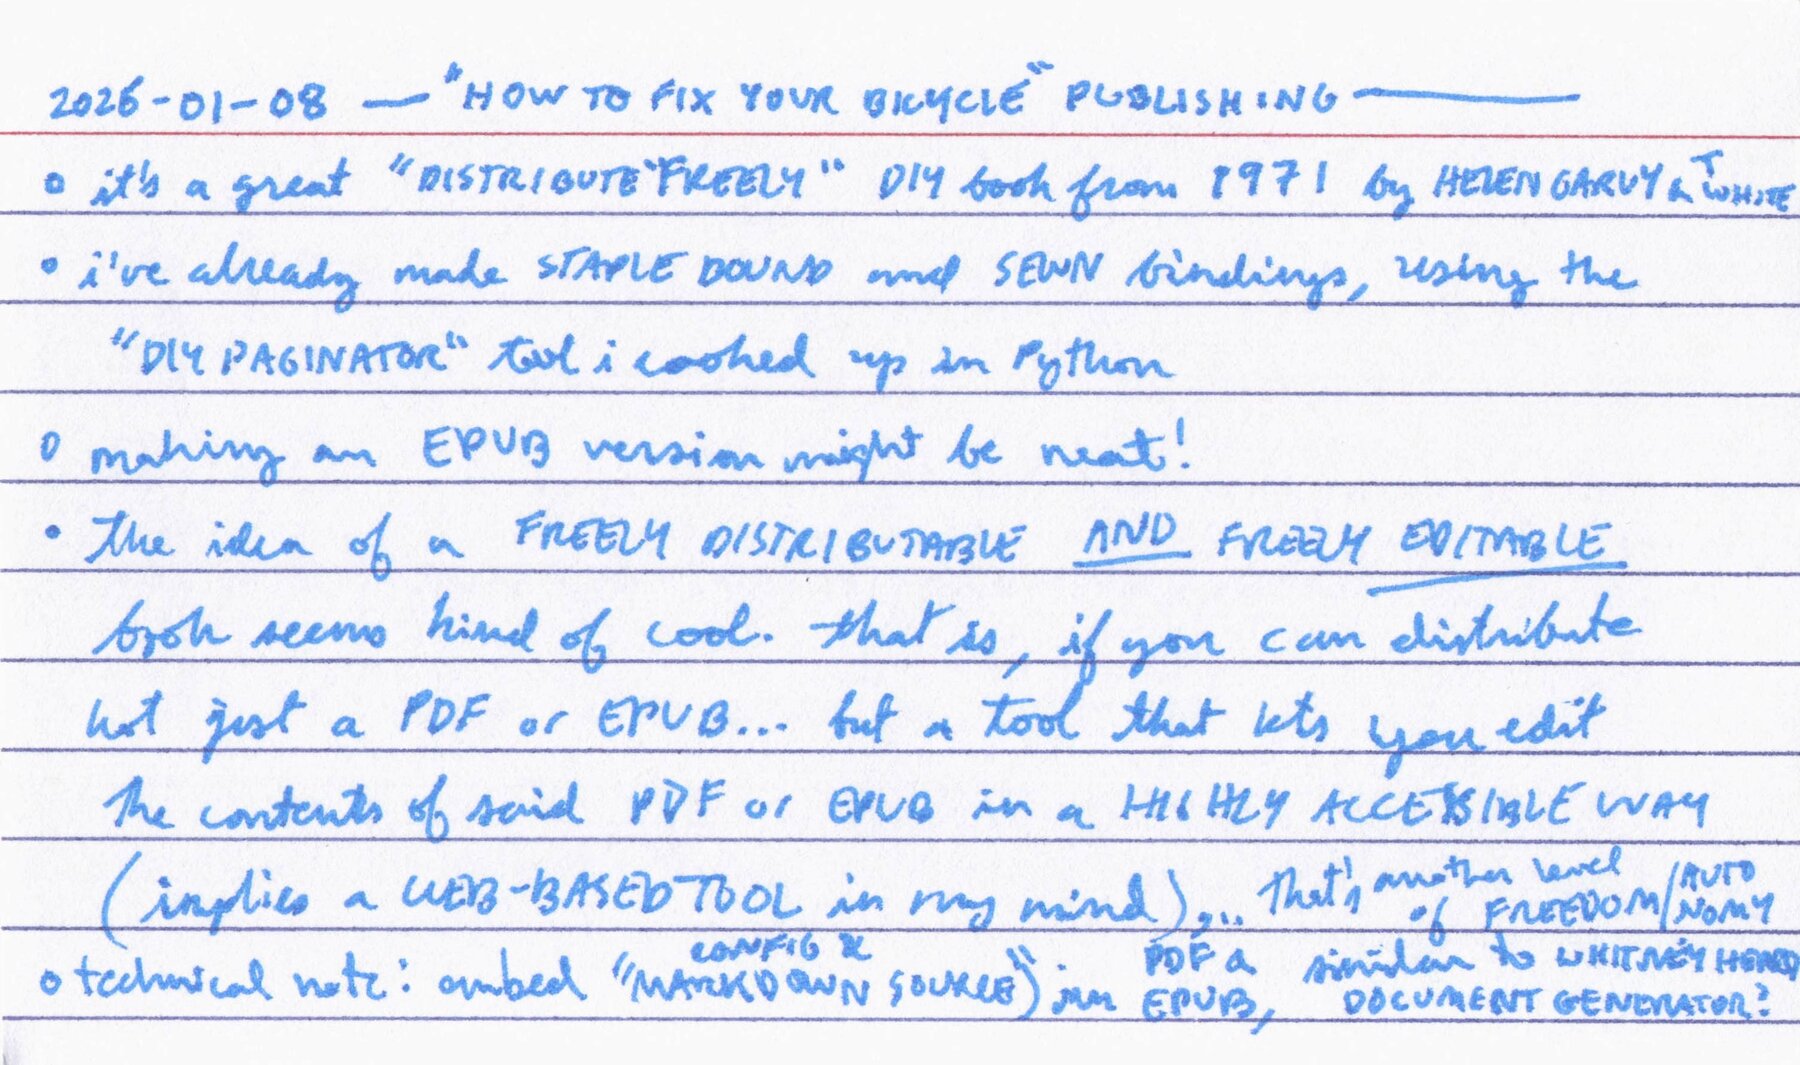 2026-01-08 — "HOW TO FIX YOUR BICYCLE" PUBLISHING —
o it's a great "DISTRIBUTE FREELY" DIY book from 1971 by HELEN GARVY & T WHITE
o i've already made STAPLE BOUND and SEWN bindings, using the
"DIY PAGINATOR" tool i cooked up in Python
o making an EPUB version might be neat!
• the idea of a FREELY DISTRIBUTABLE AND FREELY EDITABLE
book seems kind of cool. that is, if you can distribute
not just a PDF or EPUB... but a tool that lets you edit
the contents of said PDF or EPUB in a HIGHLY ACCESSIBLE WAY
(implies a WEB-BASED TOOL in my mind),.. that's another level of FREEDOM/AUTONOMY
o technical note: embed "CONFIG & MARKDOWN SOURCE" in PDF & EPUB, similar to WHITNEY DOCUMENT GENERATOR?